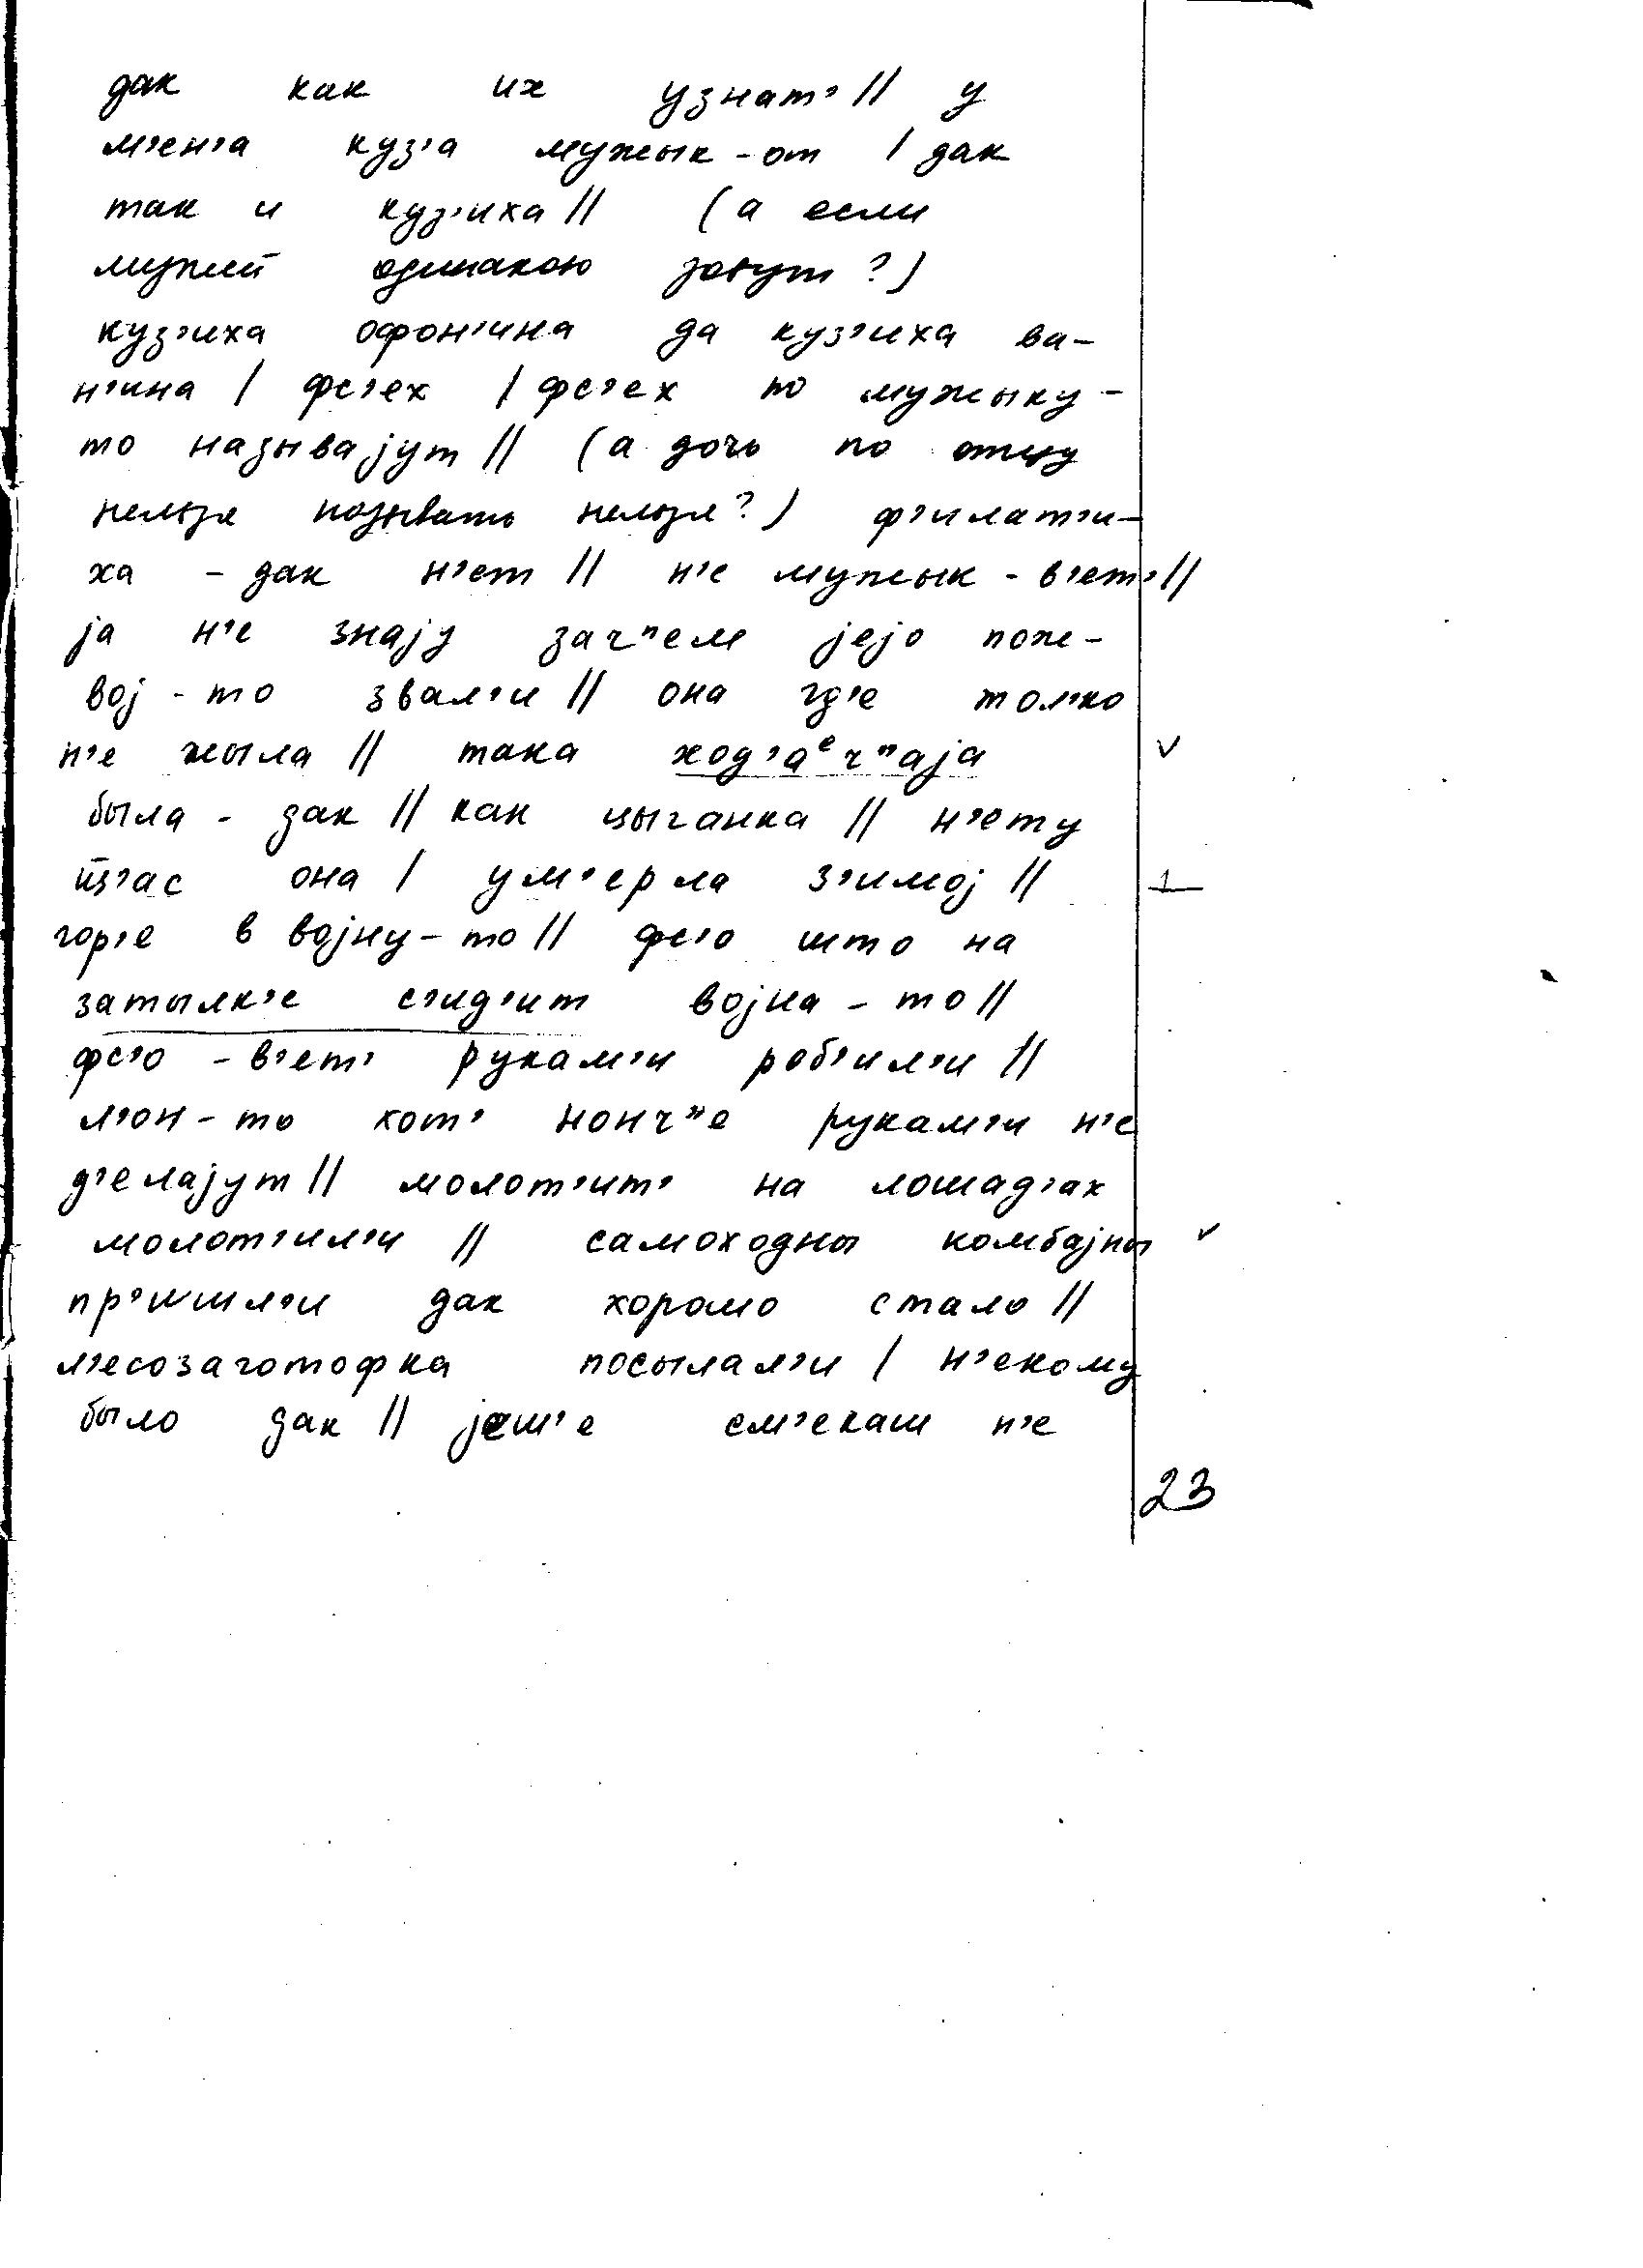 дак как их узнат' || у
м'ен'а куз'а мужык-от | дак
так и куз'иха || (а если
мужей одинакою зовут?)
куз'иха офон'ина да куз'иха ва-
н'ина | фс'ех | фс'ех по мужыку-
то называjут || (а дочь по отцу
нельзя называть нельзя?) ф'илат'и-
ха - дак н'ет || н'е мужык - в'ет' ||
jа н'е знаjу зач"ем jejо поже-
воj - то звал'и || она гд'е тол'ко
н'е жыла || така ход'аᵉч"аjа v
была - дак || как цыганка || н'ету
она | ум'ерла з'имоj || 1
гор'е в воjну - то || фс'о што на
затылк'е с'ид'ит воjна - то ||
фс'о - в'ет' рукам'и роб'ил'и ||
л'он - то хот' нонч"е рукам'и н'е
д'елаjут || молот'ит' на лошад'ах
молот'ил'и || самоходны комбаjны v
пр'ишл'и дак хорошо стало ||
л'есозаготофка посылал'и | н'екому
было дак || jеш'е см'екаш н'е
23